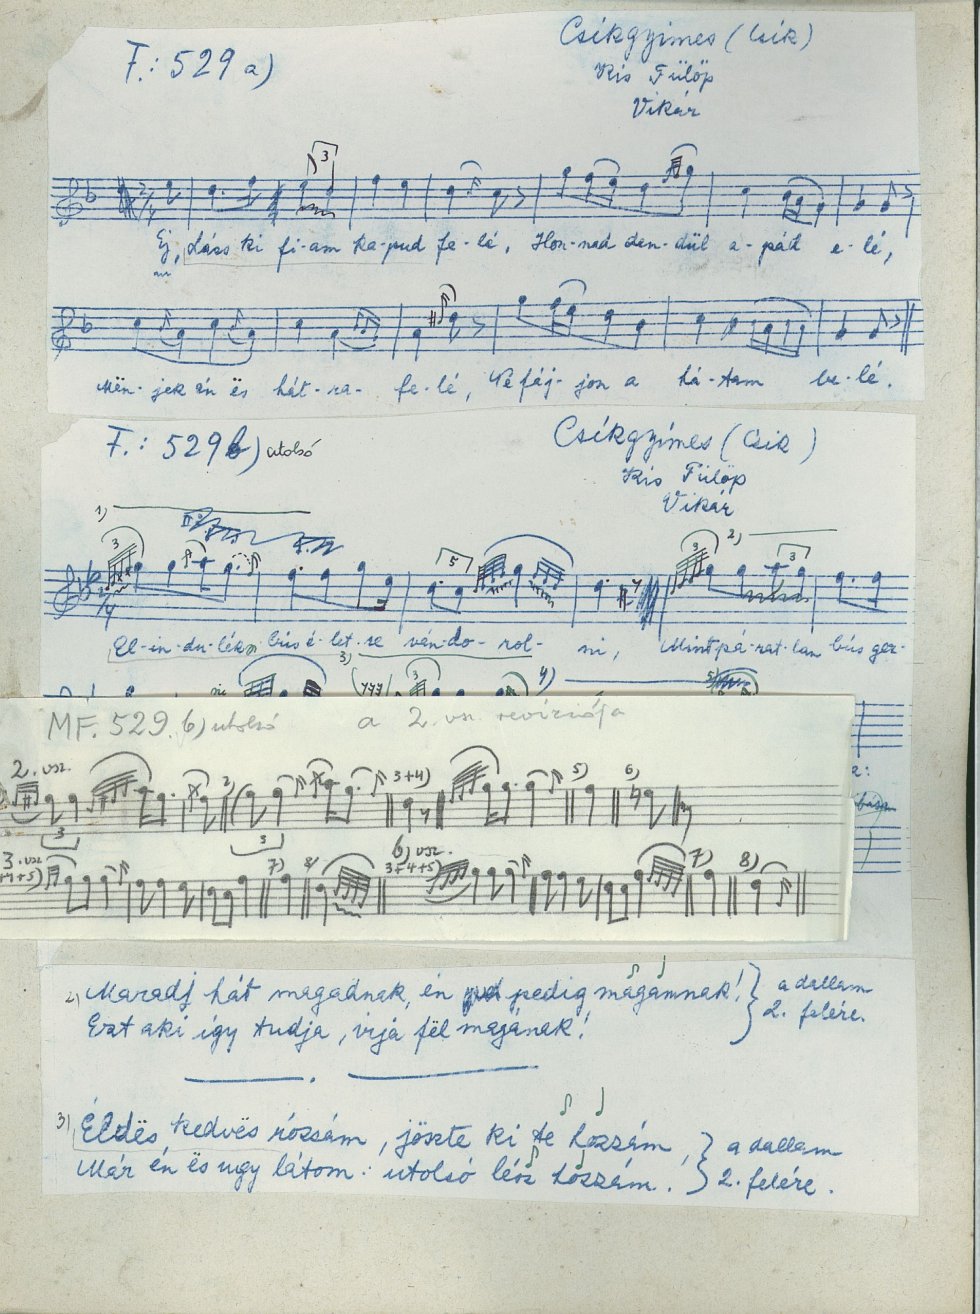 F.: 529 a)
Csíkgyimes (Csík)
Kis Fülöp
Vikár
3
Ej, Láss ki fi-am ka-pud fe-lé, Hon-nad den-dül a-pád e-lé,
Mën-jek én ës hát-ra-fe-lé, Ne fáj-jon a há-tam be-lé.
F.: 529 b) utolsó
Csíkgyímes (Csik)
Kis Fülöp
Vikár
1)
3 5 3 2) 3
El-in-du-lék bús é-let-re ván-do-rol-ni, Mint pá-rat-lan bús ger-
3)
4)
5)
MF. 529. b) utolsó a 2. vsz. revíziója
2. vsz. 2) 3+4) 5) 6)
3 3
3. vsz. 7) 8) 6) vsz. 3+4+5) 7) 8)
2) Maradj hát magadnak, én pedig magamnak! } a dallam
Ezt aki így tudja, vijá fël magának! 2. felére.
3) Éldës kedvës rózsám, jöszte ki te hozzám, } a dallam
Már én ës ugy látom utolsó lësz hozzám. 2. felére.